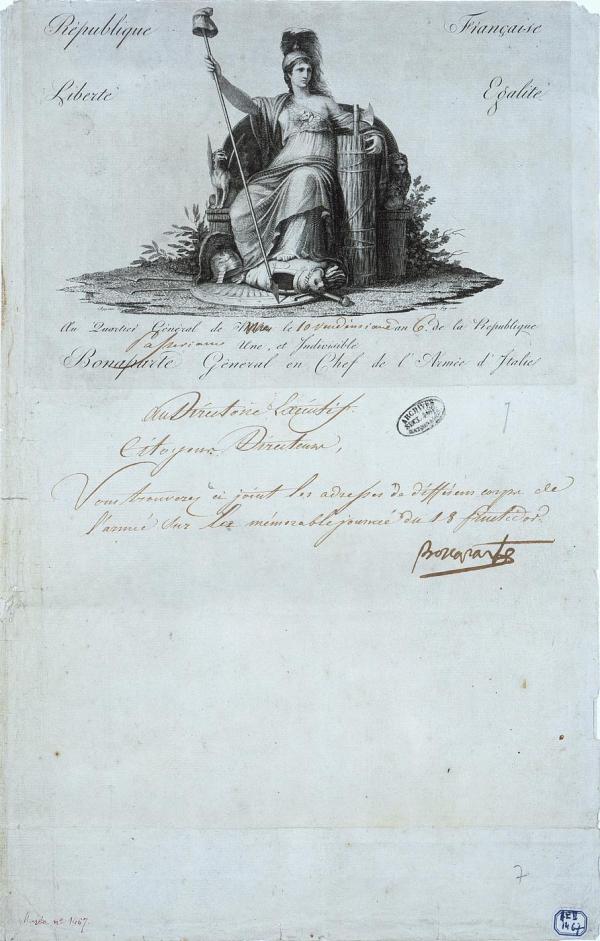 République Française
Liberté Egalité
Au Quartier Général de le 10 vendémiaire an 6. de la République
à passeriano Une, et Indivisible
Bonaparte Général en Chef de l'Armée d'Italie
au Directoire Exécutif.
ARCHIVES NATIONALES
Citoyens Directeurs,
Vous trouverez ci joint les adresses de différens corps de
l'armée sur la mémorable journée du 18 fructidor.
Bonaparte
7
Musée nº 1467.
AEII
1467